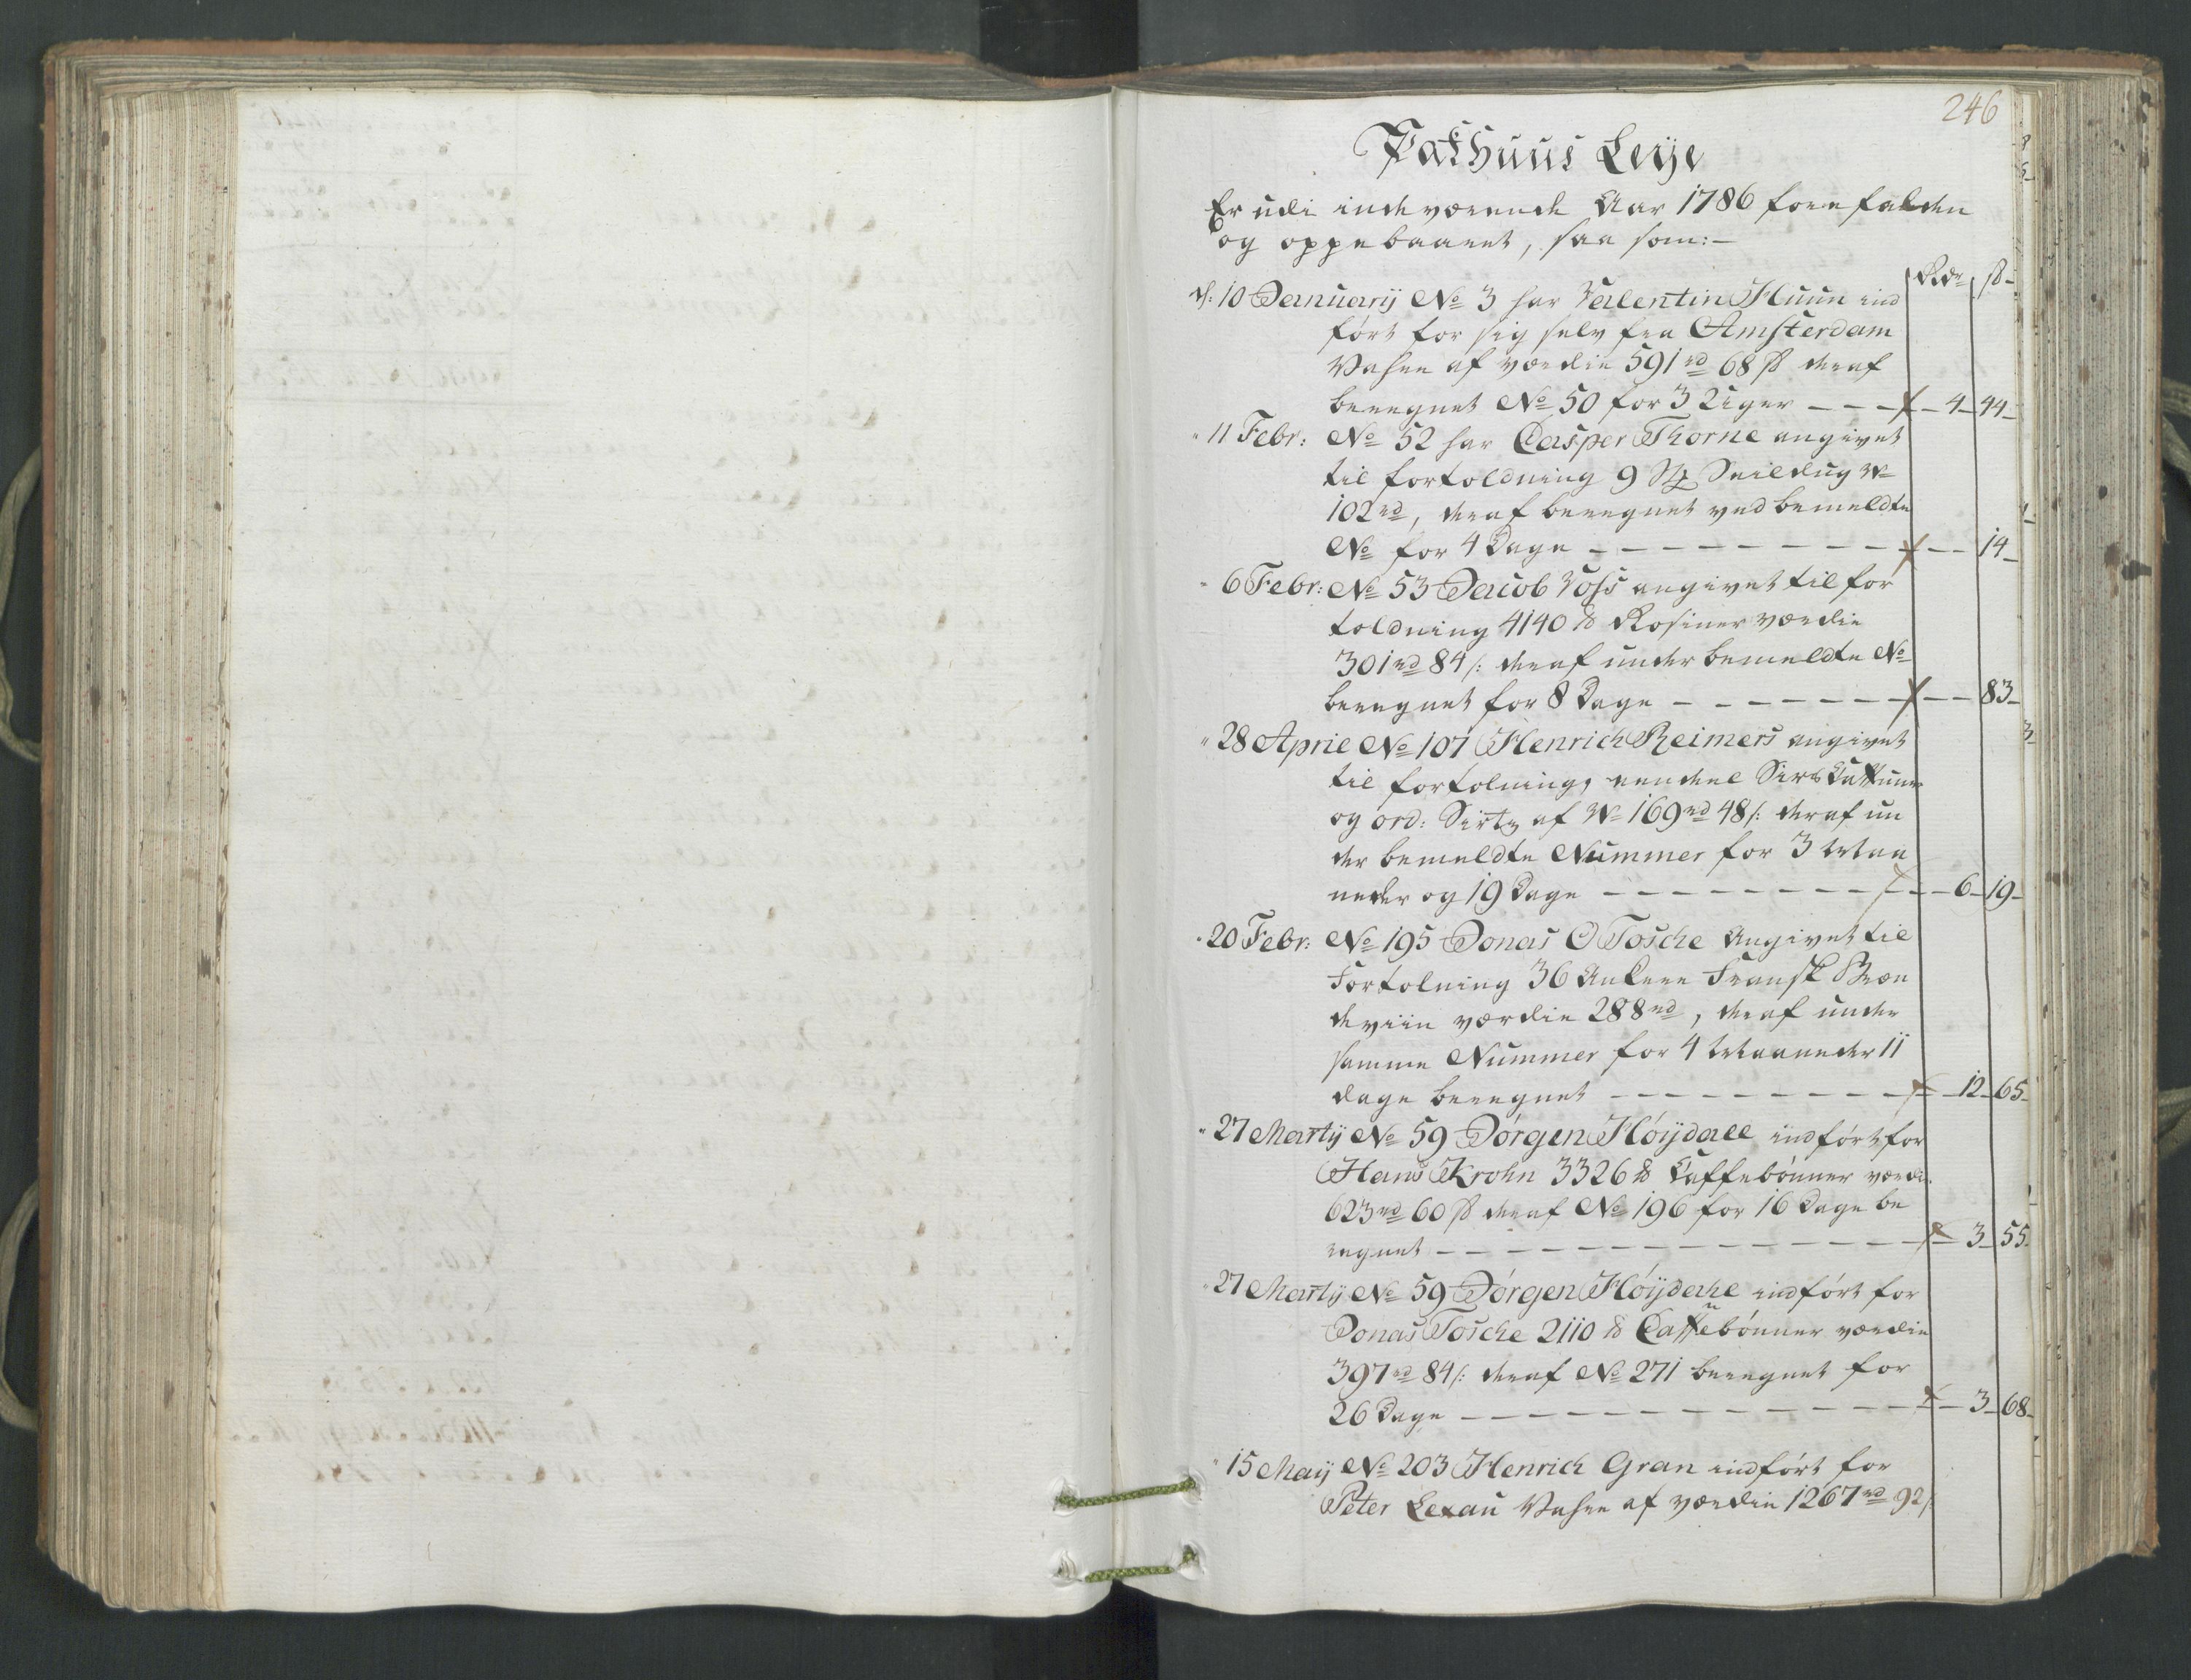 246
Pakhuus Leije
Er udi indeværende Aar 1786 forefalden
og oppebaaret, saa som:-
Rdr ß
d: 10 Januarij No 3 har Valentin Huun ind
ført for sig selv fra Amsterdam
Vahre af værdie 591 rd 68 ß deraf
beregnet No 50 for 3 Uger - - - 4 44
" 11 Febr: No 52 har Casper Thorne angivet
til fortoldning 9 St Seildug
102 rd, deraf beregnet ved bemeldte
No for 4 Dage - - - 14
" 6 Febr: No 53 Jacob Voss angivet til for
toldning 4140 lb Rosiner værdie
301 rd 84 s: deraf under bemeldte No
beregnet for 8 Dage - - - 83
" 28 April No 107 Henrich Reimers angivet
til fortolning, eendeel Sirs Cattuner
og ord: Sirtz af 169 rd 48 s: deraf un
der bemeldte Nummer for 3 Maa
neder og 19 Dage - - - 6 19
" 20 Febr: No 195 Jonas O Tosche Angivet til
Fortolning 36 Ankere Fransk Bræn
deviin værdie 288 rd, deraf under
samme Nummer for 4 Maaneder 11
dage beregnet - - - 12 65
" 27 Martij No 59 Jørgen Høijdall indført for
Hans Krohn 3326 lb Caffebønner værdi
623 rd 60 ß deraf No 196 for 16 Dage be
regnet - - - 3 55
" 27 Martij No 59 Jørgen Høijdahl indført for
Jonas Tosche 2110 lb Caffebønner værdie
397 rd 84 s: deraf No 271 beregnet for
26 Dage - - - 3 68
" 15 Maij No 203 Henrich Gran indført for
Peter Lexau Vahre af værdie 1267 rd 92 s: